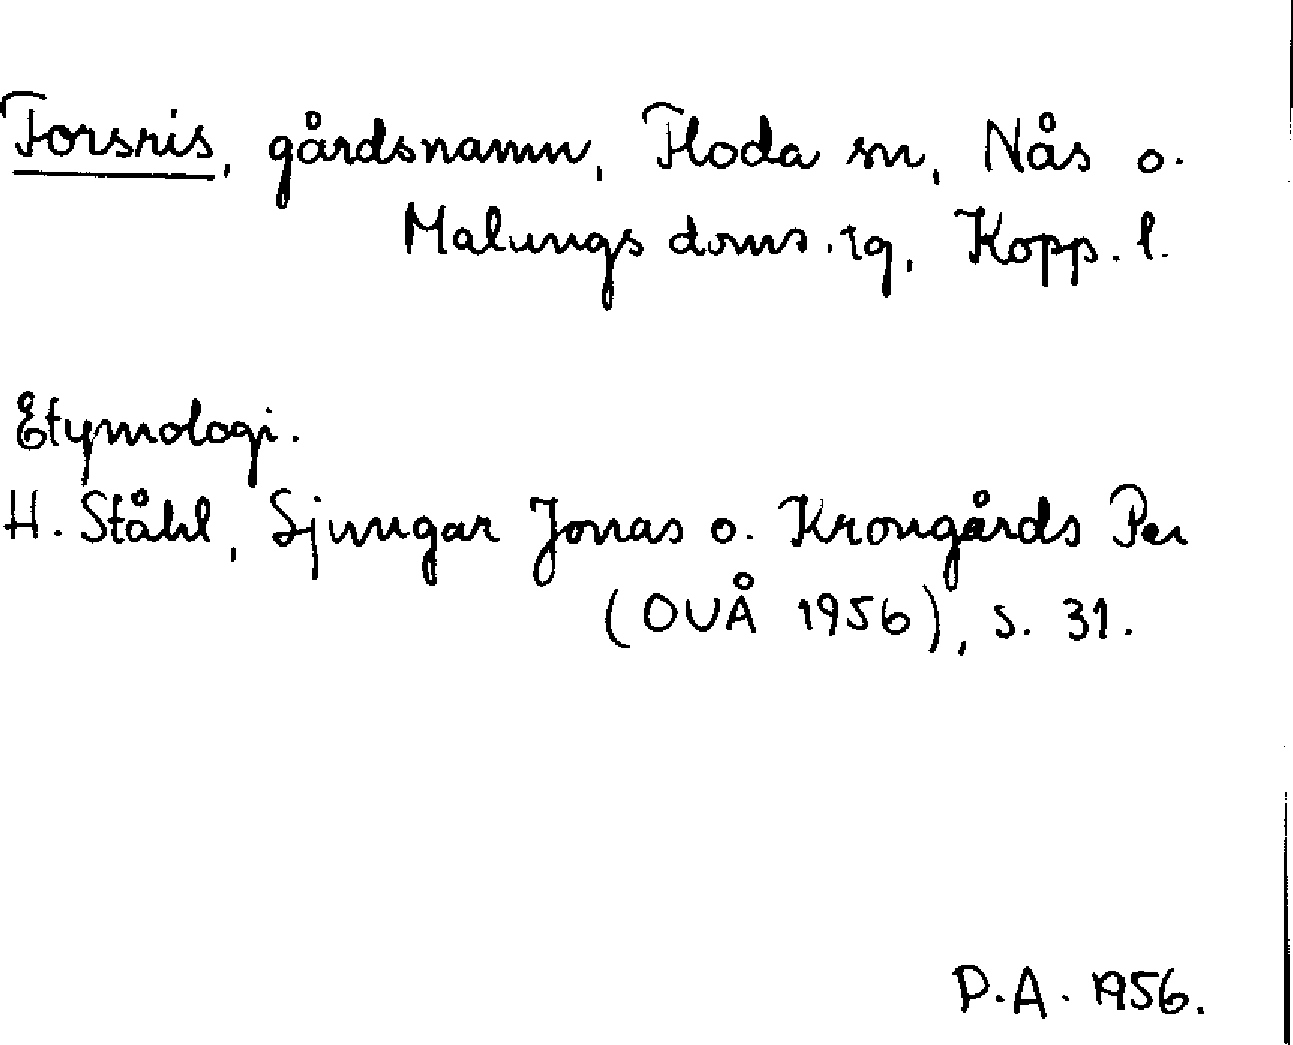 Forsris, gårdsnamn, Floda sn, Nås o.
Malungs doms.sg, Kopp. l.
Etymologi.
H. Ståhl, Sjungar Jonas o. Krongårds Per
(OUÅ 1956), s. 31.
P.A. 1956.